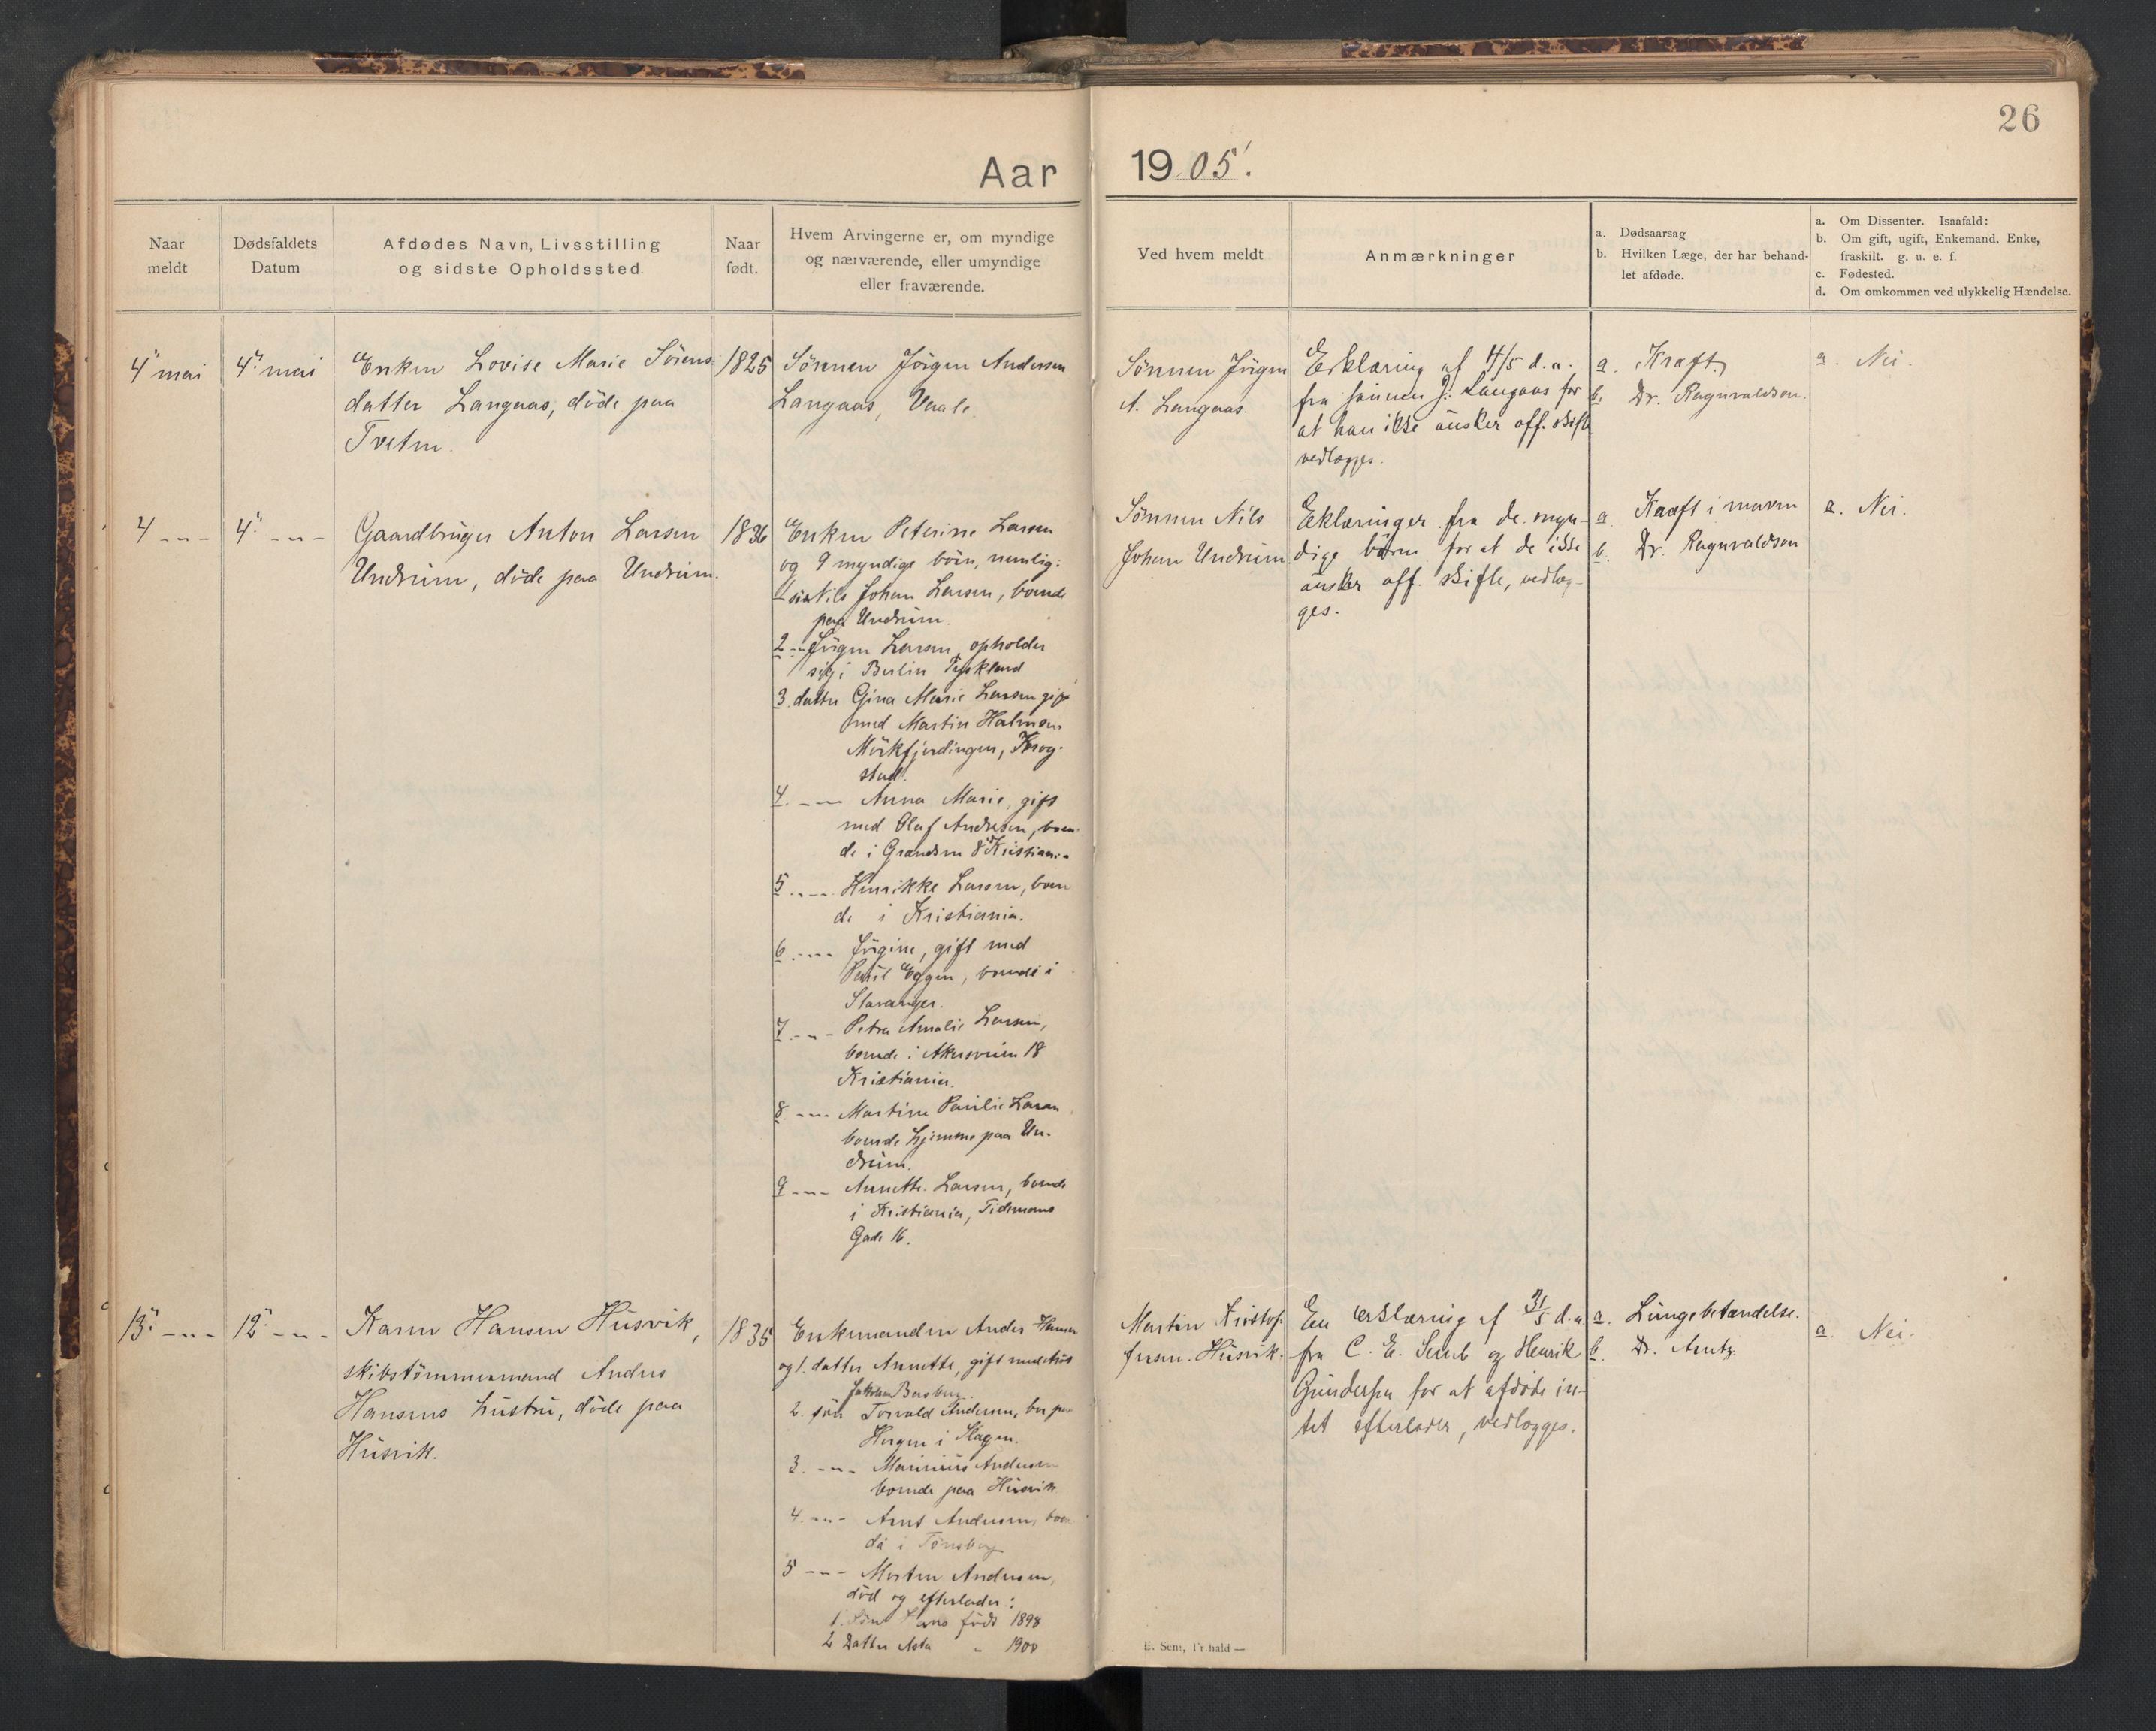 26
Aar 1905.
Naar meldt
Dødsfaldets Datum
Afdødes Navn, Livsstilling og sidste Opholdssted.
Naar født.
Hvem Arvingerne er, om myndige og nærværende, eller umyndige eller fraværende.
Ved hvem meldt
Anmærkninger
a. Dødsaarsag
b. Hvilken Læge, der har behand-
let afdøde.
a. Om Dissenter. Isaafald:
b. Om gift, ugift, Enkemand. Enke,
fraskilt. g. u. e. f.
c. Fødested.
d. Om omkommen ved ulykkelig Hændelse.
4 mai
4 mai
Enken Lovise Marie Sörens-
datter Langaas, döde paa
Tveten.
1825
Sönnen Jörgen Andersen
Langaas, Vaale.
Sönnen Jörgen
A. Langaas.
Erklæring af 4/5 d.a.
fra sönnen J. Langaas for
at han ikke önsker off. skifte
vedlægges.
a. Kræft.
b. Dr. Ragnvaldsen.
a. Nei.
4 -"-
4 -"-
Gaardbruger Anton Larsen
Undrum, döde paa Undrum.
1836
Enken Peterine Larsen
og 9 myndige börn, nemlig:
1 sön Nils Johan Larsen, boende
paa Undrum.
2 -"- Jörgen Larsen, opholder
sig i Berlin Tyskland
3. datter Gina Marie Larsen gift
med Martin Halmsen
Mörkfjerdingen, Krog-
stad.
4. -"- Anna Marie, gift
med Olaf Andresen, boen-
de i Grændsen 8 Kristiania
5. -"- Henrikke Larsen, boen
de i Kristiania.
6. -"- Jörgine, gift med
Paul Eggen, boende i
Stavanger.
7. -"- Petra Amalie Larsen,
boende i Akersveien 18
Kristiania.
8. -"- Martine Pauline Larsen
boende hjemme paa Un-
drum.
9 -"- Annette Larsen, boende
i Kristiania, Tidemans
Gade 16.
Sönnen Nils
Johan Undrum
Eklæringer fra de myn-
dige börn for at de ikke
önsker off. skifte, vedlæg-
ges.
a. Kræft i maven
b. Dr. Ragnvaldsen
a. Nei.
13 -"-
12 -"-
Karen Hansen Husvik,
skibstömmermand Anders
Hansens hustru, döde paa
Husvik.
1835
Enkemanden Anders Hansen
og 1. datter Annette, gift med
Jakobsen
2. sön Torvald Andersen, bor paa
i Slagen.
3. -"- Marinius Andersen
boende paa Husvik
4. -"- Arnt Andersen, boen
de i Tönsberg
5 -"- Morten Andersen,
död og efterlader:
1. Sön Hans födt 1898
2 Datter Asta " 1900
Martin Kristof-
fersen. Husvik.
En erklæring af 31/5 d.a.
fra C. E. Semb og Henrik
Gundersen for at afdöde in-
tet efterlader, vedlægges.
a. Lungebetændelse.
b. Dr. Arntz.
a. Nei.